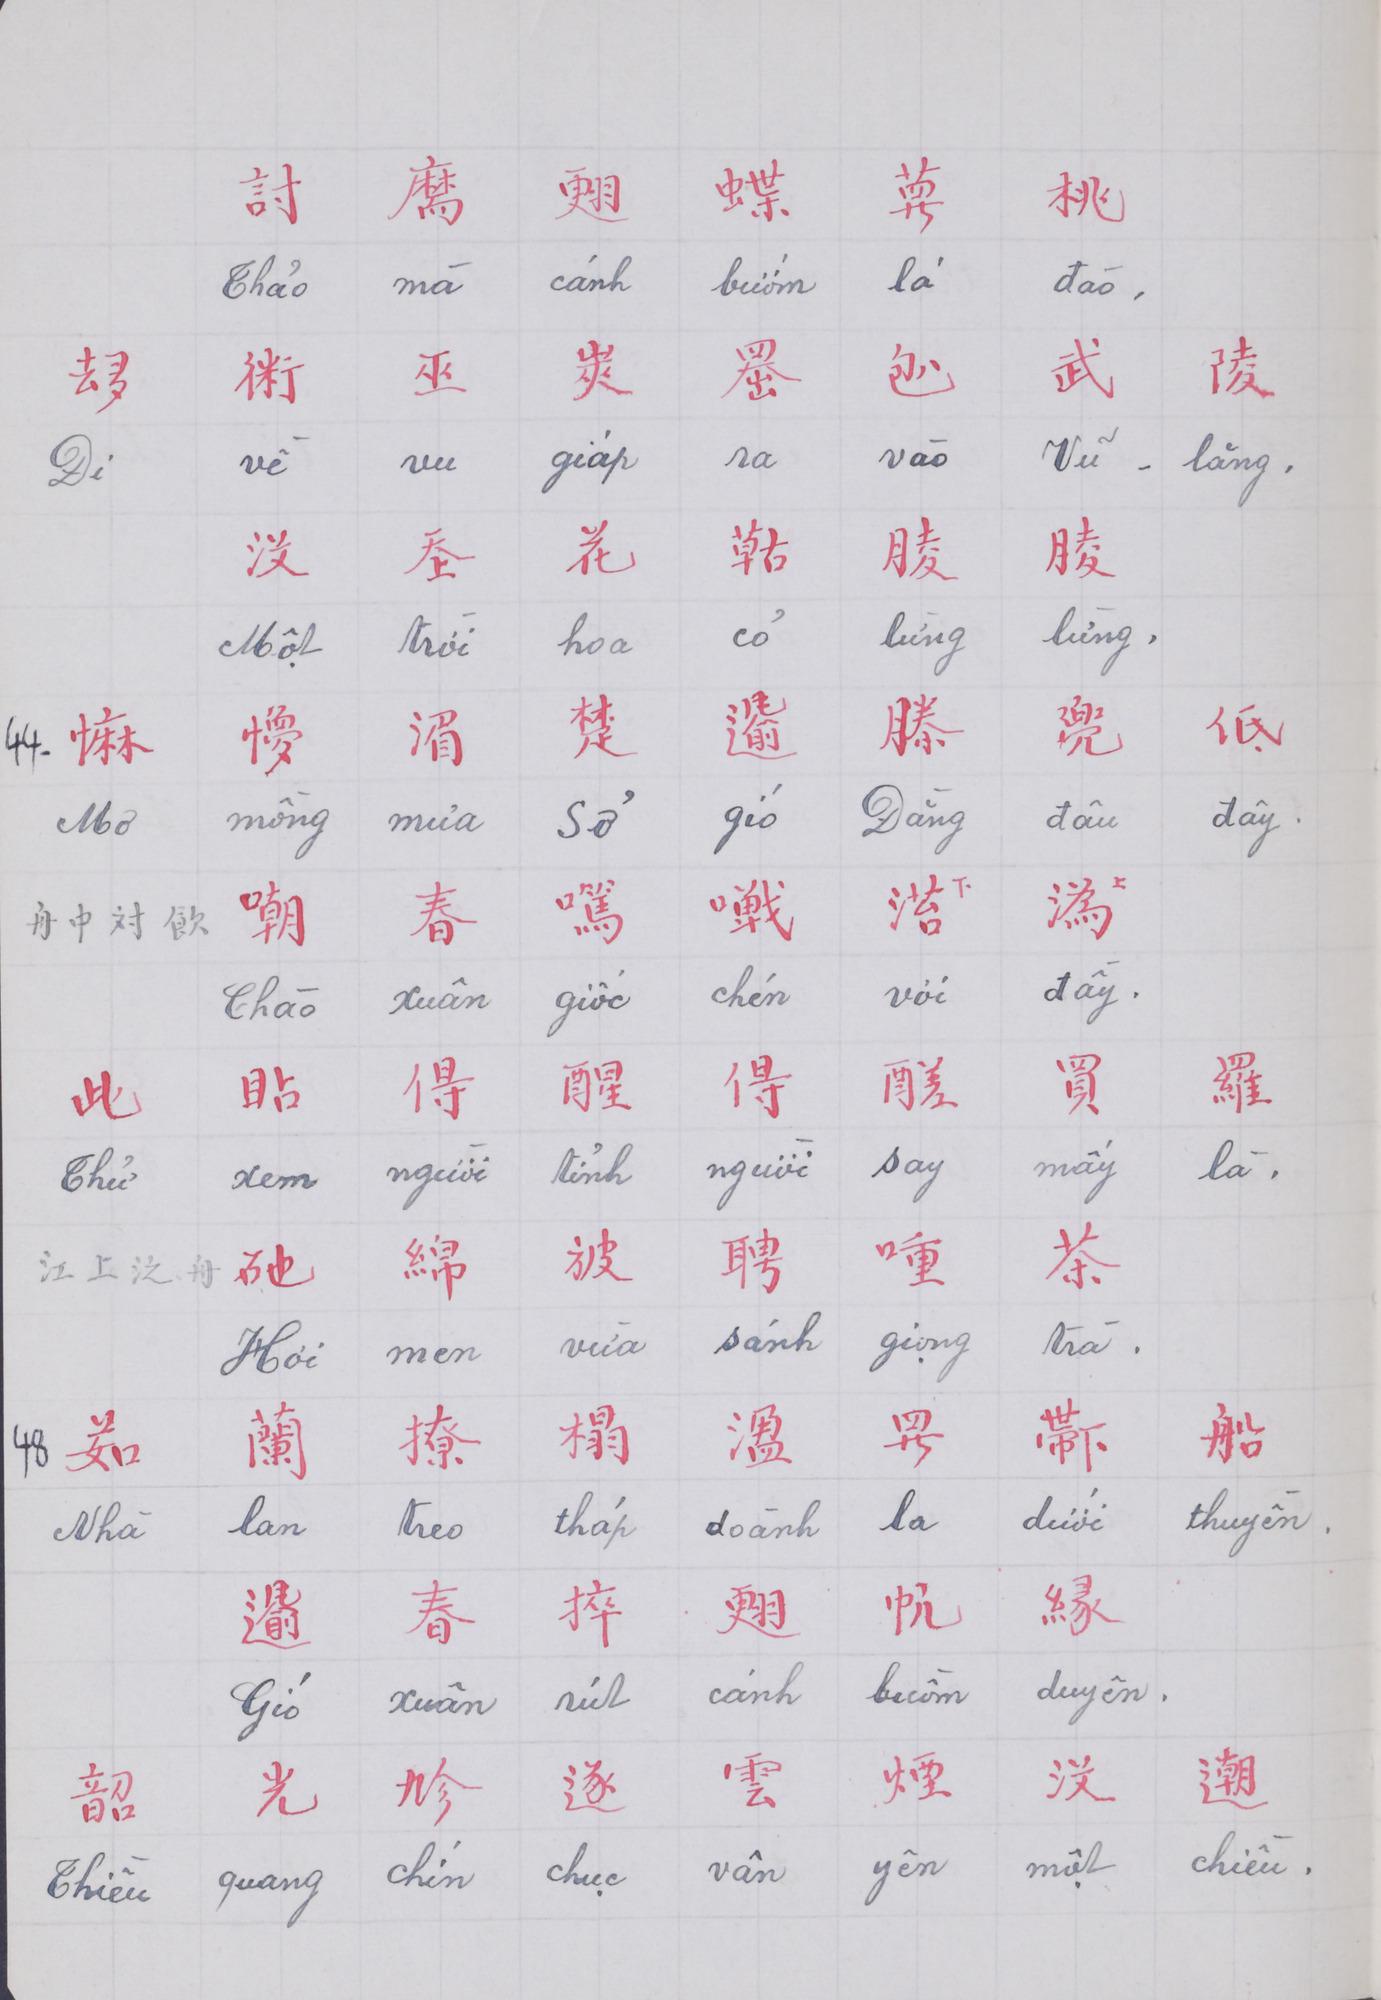 討 𢊗 𦑃 蝶 蘿 桃
Thảo mà cánh bướm lá đào,
𠫾 術 巫 峽 𦋦 𠓨 武 陵
Đi về vu giáp ra vào Vũ - lăng.
没 𡗶 花 𦹵 䔖 䔖
Một trời hoa cỏ lừng lừng.
44- 㦄 懜 湄 楚 𨔍 滕 兜 低
Mơ mòng mưa Sở gió Đằng đâu đây.
舟中対飲 嘲 春 𠽖 𡃹 渃下 溈上
Chào xuân giốc chén vơi đầy.
此 𥄮 㝵 醒 㝵 醝 買 羅
Thử xem người tỉnh người say mấy là.
江上泛舟 𥐦 綿 𣃣 聘 喠 茶
Hơi men vừa sánh giọng trà.
48 茹 蘭 撩 榻 溋 𦉼 𢄂 船
Nhà lan treo tháp doành la dưới thuyền.
𨔍 春 捽 𦑃 帆 緣
Gió xuân rút cánh buồm duyên.
韶 光 𢒂 逐 雲 煙 没 𣊿
Thiều quang chín chục vân yên một chiều.